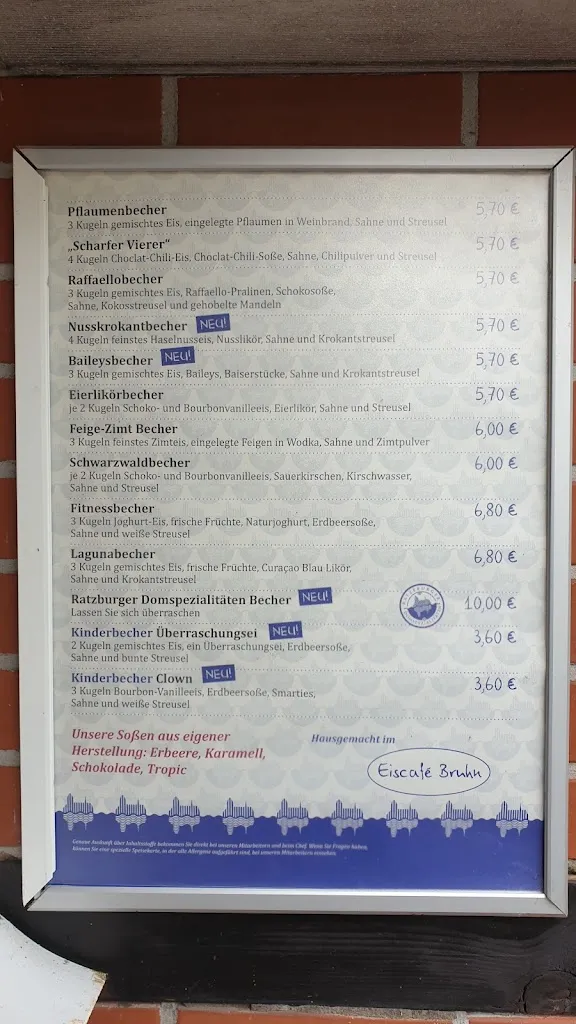 Pflaumenbecher 5,70 €
3 Kugeln gemischtes Eis, eingelegte Pflaumen in Weinbrand, Sahne und Streusel
„Scharfer Vierer“ 5,70 €
4 Kugeln Choclat-Chili-Eis, Choclat-Chili-Soße, Sahne, Chilipulver und Streusel
Raffaellobecher 5,70 €
3 Kugeln gemischtes Eis, Raffaello-Pralinen, Schokosoße,
Sahne, Kokosstreusel und gehobelte Mandeln
Nusskrokantbecher NEU! 5,70 €
4 Kugeln feinstes Haselnusseis, Nusslikör, Sahne und Krokantstreusel
Baileysbecher NEU! 5,70 €
3 Kugeln gemischtes Eis, Baileys, Baiserstücke, Sahne und Krokantstreusel
Eierlikörbecher 5,70 €
je 2 Kugeln Schoko- und Bourbonvanilleeis, Eierlikör, Sahne und Streusel
Feige-Zimt Becher 6,00 €
3 Kugeln feinstes Zimteis, eingelegte Feigen in Wodka, Sahne und Zimtpulver
Schwarzwaldbecher 6,00 €
je 2 Kugeln Schoko- und Bourbonvanilleeis, Sauerkirschen, Kirschwasser,
Sahne und Streusel
Fitnessbecher 6,80 €
3 Kugeln Joghurt-Eis, frische Früchte, Naturjoghurt, Erdbeersoße,
Sahne und weiße Streusel
Lagunabecher 6,80 €
3 Kugeln gemischtes Eis, frische Früchte, Curaçao Blau Likör,
Sahne und Krokantstreusel
Ratzburger Domspezialitäten Becher NEU! 10,00 €
Lassen Sie sich überraschen
Kinderbecher Überraschungsei NEU! 3,60 €
2 Kugeln gemischtes Eis, ein Überraschungsei, Erdbeersoße,
Sahne und bunte Streusel
Kinderbecher Clown NEU! 3,60 €
3 Kugeln Bourbon-Vanilleeis, Erdbeersoße, Smarties,
Sahne und weiße Streusel
Unsere Soßen aus eigener
Herstellung: Erbeere, Karamell,
Schokolade, Tropic
Hausgemacht im
Eiscafé Bruhn
Genaue Auskunft über Inhaltsstoffe bekommen Sie direkt bei unseren Mitarbeitern und beim Chef. Wenn Sie Fragen haben,
können Sie eine spezielle Speisekarte, in der alle Allergene aufgeführt sind, bei unseren Mitarbeitern einsehen.